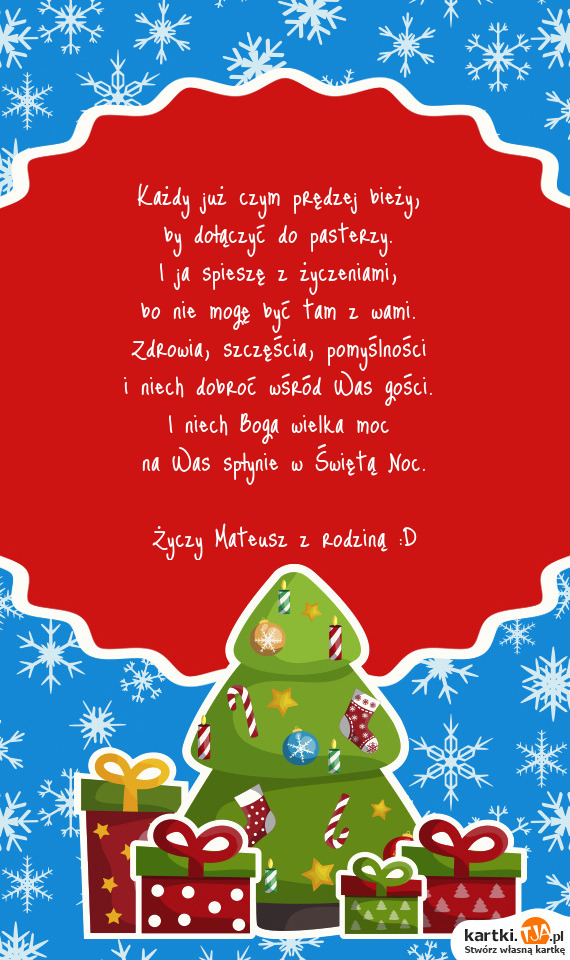 Każdy już czym prędzej bieży,
by dołączyć do pasterzy.
I ja spieszę z życzeniami,
bo nie mogę być tam z wami.
Zdrowia, szczęścia, pomyślności
i niech dobroć wśród Was gości.
I niech Boga wielka moc
na Was spłynie w Świętą Noc.
Życzy Mateusz z rodziną :D
kartki.TJA.pl
Stwórz własną kartkę